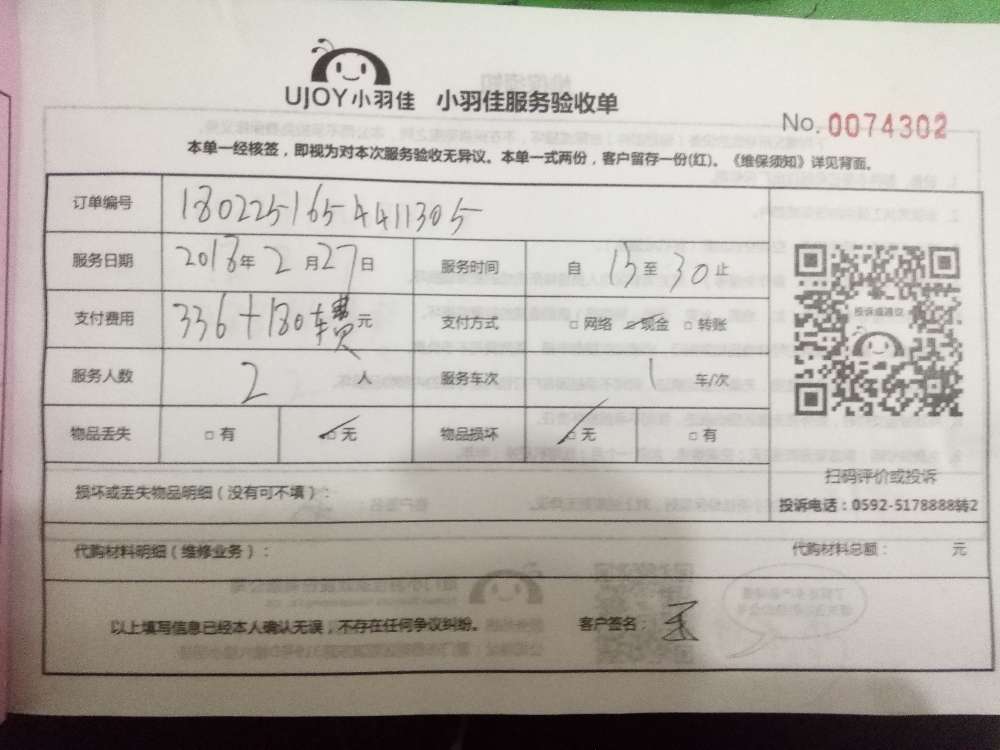 UJOY小羽佳 小羽佳服务验收单
No. 0074302
本单一经核签，即视为对本次服务验收无异议。本单一式两份，客户留存一份(红)。《维保须知》详见背面。
订单编号 1802251654411305
服务日期 2018年2月27日 服务时间 自15至30止
支付费用 336+180车费元 支付方式 □网络 □现金 □转账
投诉或建议
服务人数 2人 服务车次 1车/次
物品丢失 □有 □无 物品损坏 □无 □有
扫码评价或投诉
损坏或丢失物品明细（没有可不填）：
投诉电话：0592-5178888转2
代购材料明细（维修业务）： 代购材料总额： 元
以上填写信息已经本人确认无误，不存在任何争议纠纷。 客户签名：